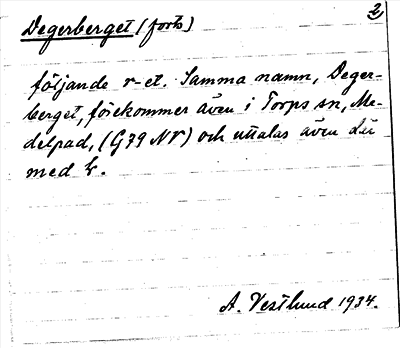 2)
Degerberget (forts)
följande r-et. Samma namn, Deger-
berget, förekommer även i Torps sn, Me-
delpad, (G79 NV) och uttalas även där
med k.
A. Vestlund 1934.